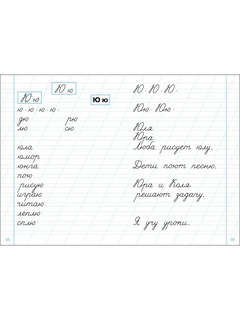 Ю ю
Ю ю
Ю ю
ю · ю · ю · ю ·
дю рю
лю сю
юла
юмор
юнга
пою
рисую
играю
читаю
леплю
сплю
Ю · Ю · Ю ·
Юю · Юю ·
Юля
Юра
Люба рисует юлу.
Дети поют песню.
Юра и Коля
решают задачу.
Я учу уроки.